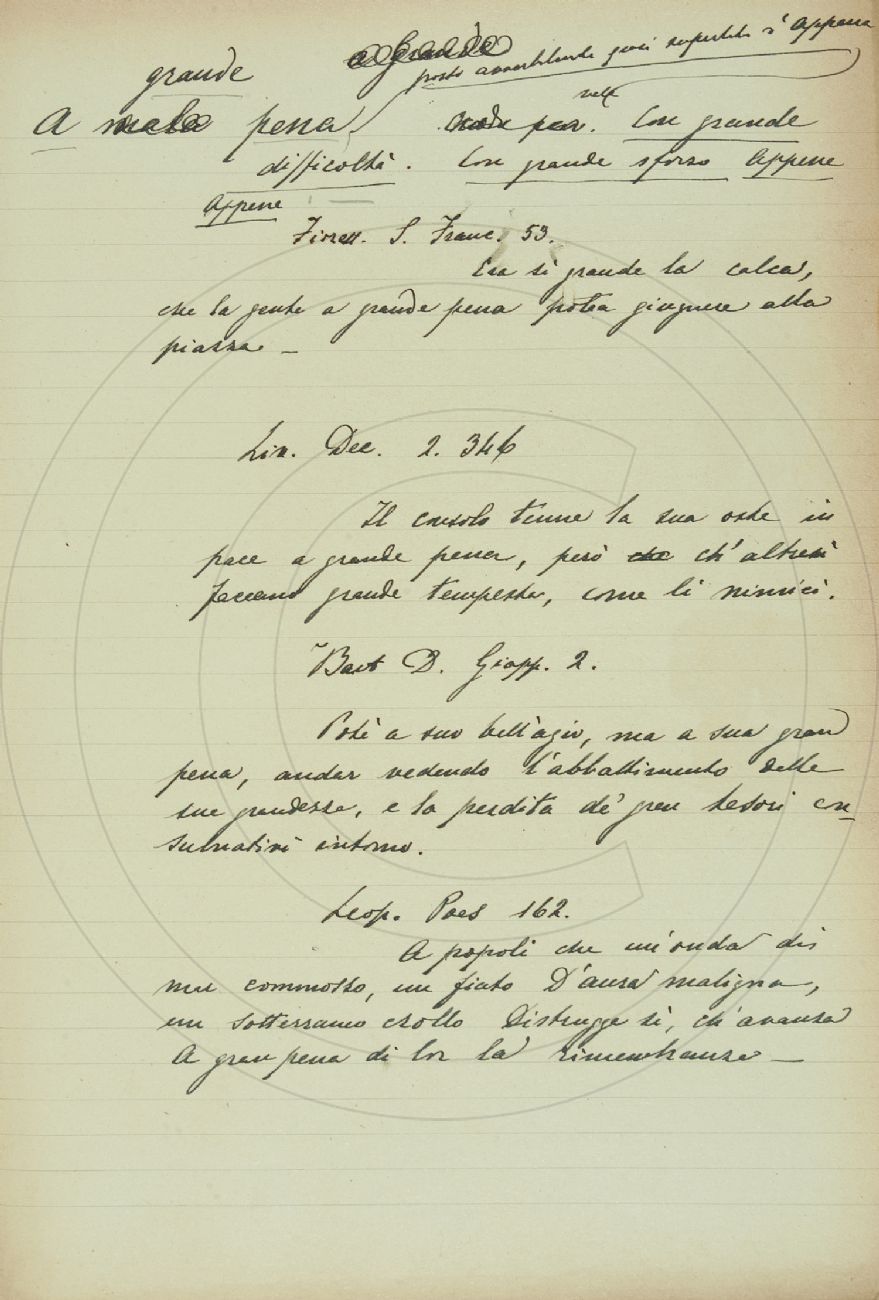 grande
posto avverbialmente quasi superlat. d' Appena
A pena
Con grande
difficoltà. Con grande sforzo Appena
Appena
Fiorett. S. Franc. 53.
Era sì grande la calca,
che la gente a grande pena potea giugnere alla
piazza –
Liv. Dec. 2. 346
Il consolo tenne la sua oste in
pace a grande pena, però ch' altresì
faceano grande tempesta, come li nimici.
Bart D. Giapp. 2.
Poté a suo bell'agio, ma a sua gran
pena, andar vedendo l'abbattimento delle
sue grandezze, e la perdita de' gran tesori con
sumativi intorno.
Leop. Poes 162.
A popoli che un' onda di
mar commosso, un fiato D'aura maligna,
un sotterraneo crollo Distrugge sì, ch' avanza
A gran pena di lor la rimembranza –